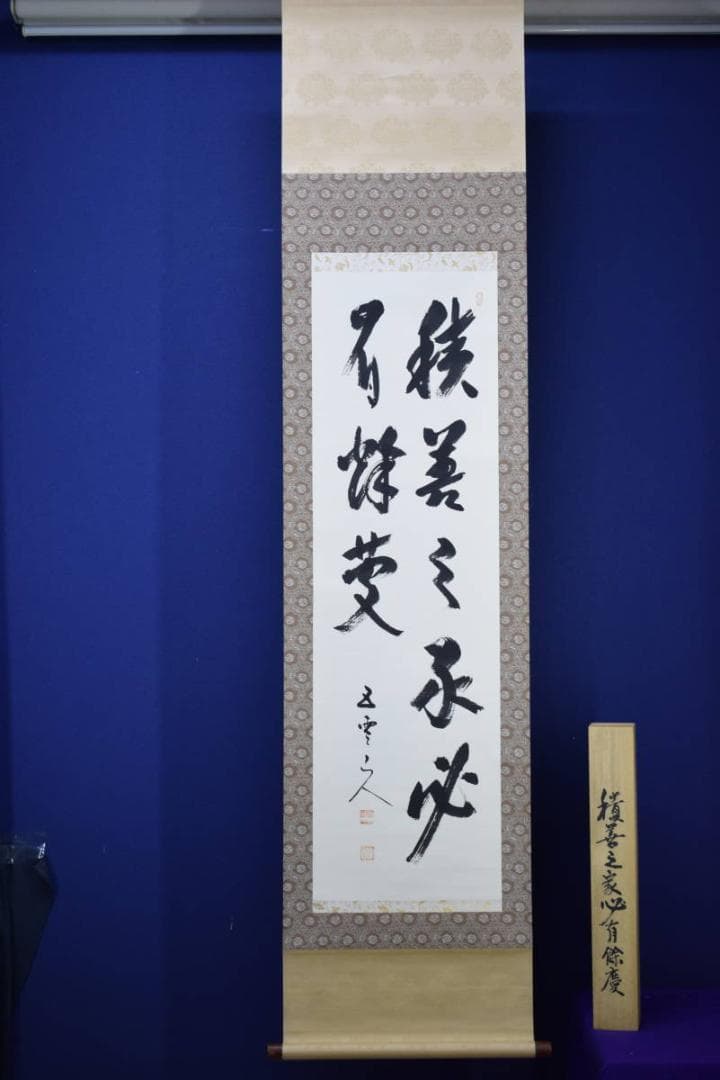 積善之家必
有餘慶
五雲山人
積善之家必有餘慶